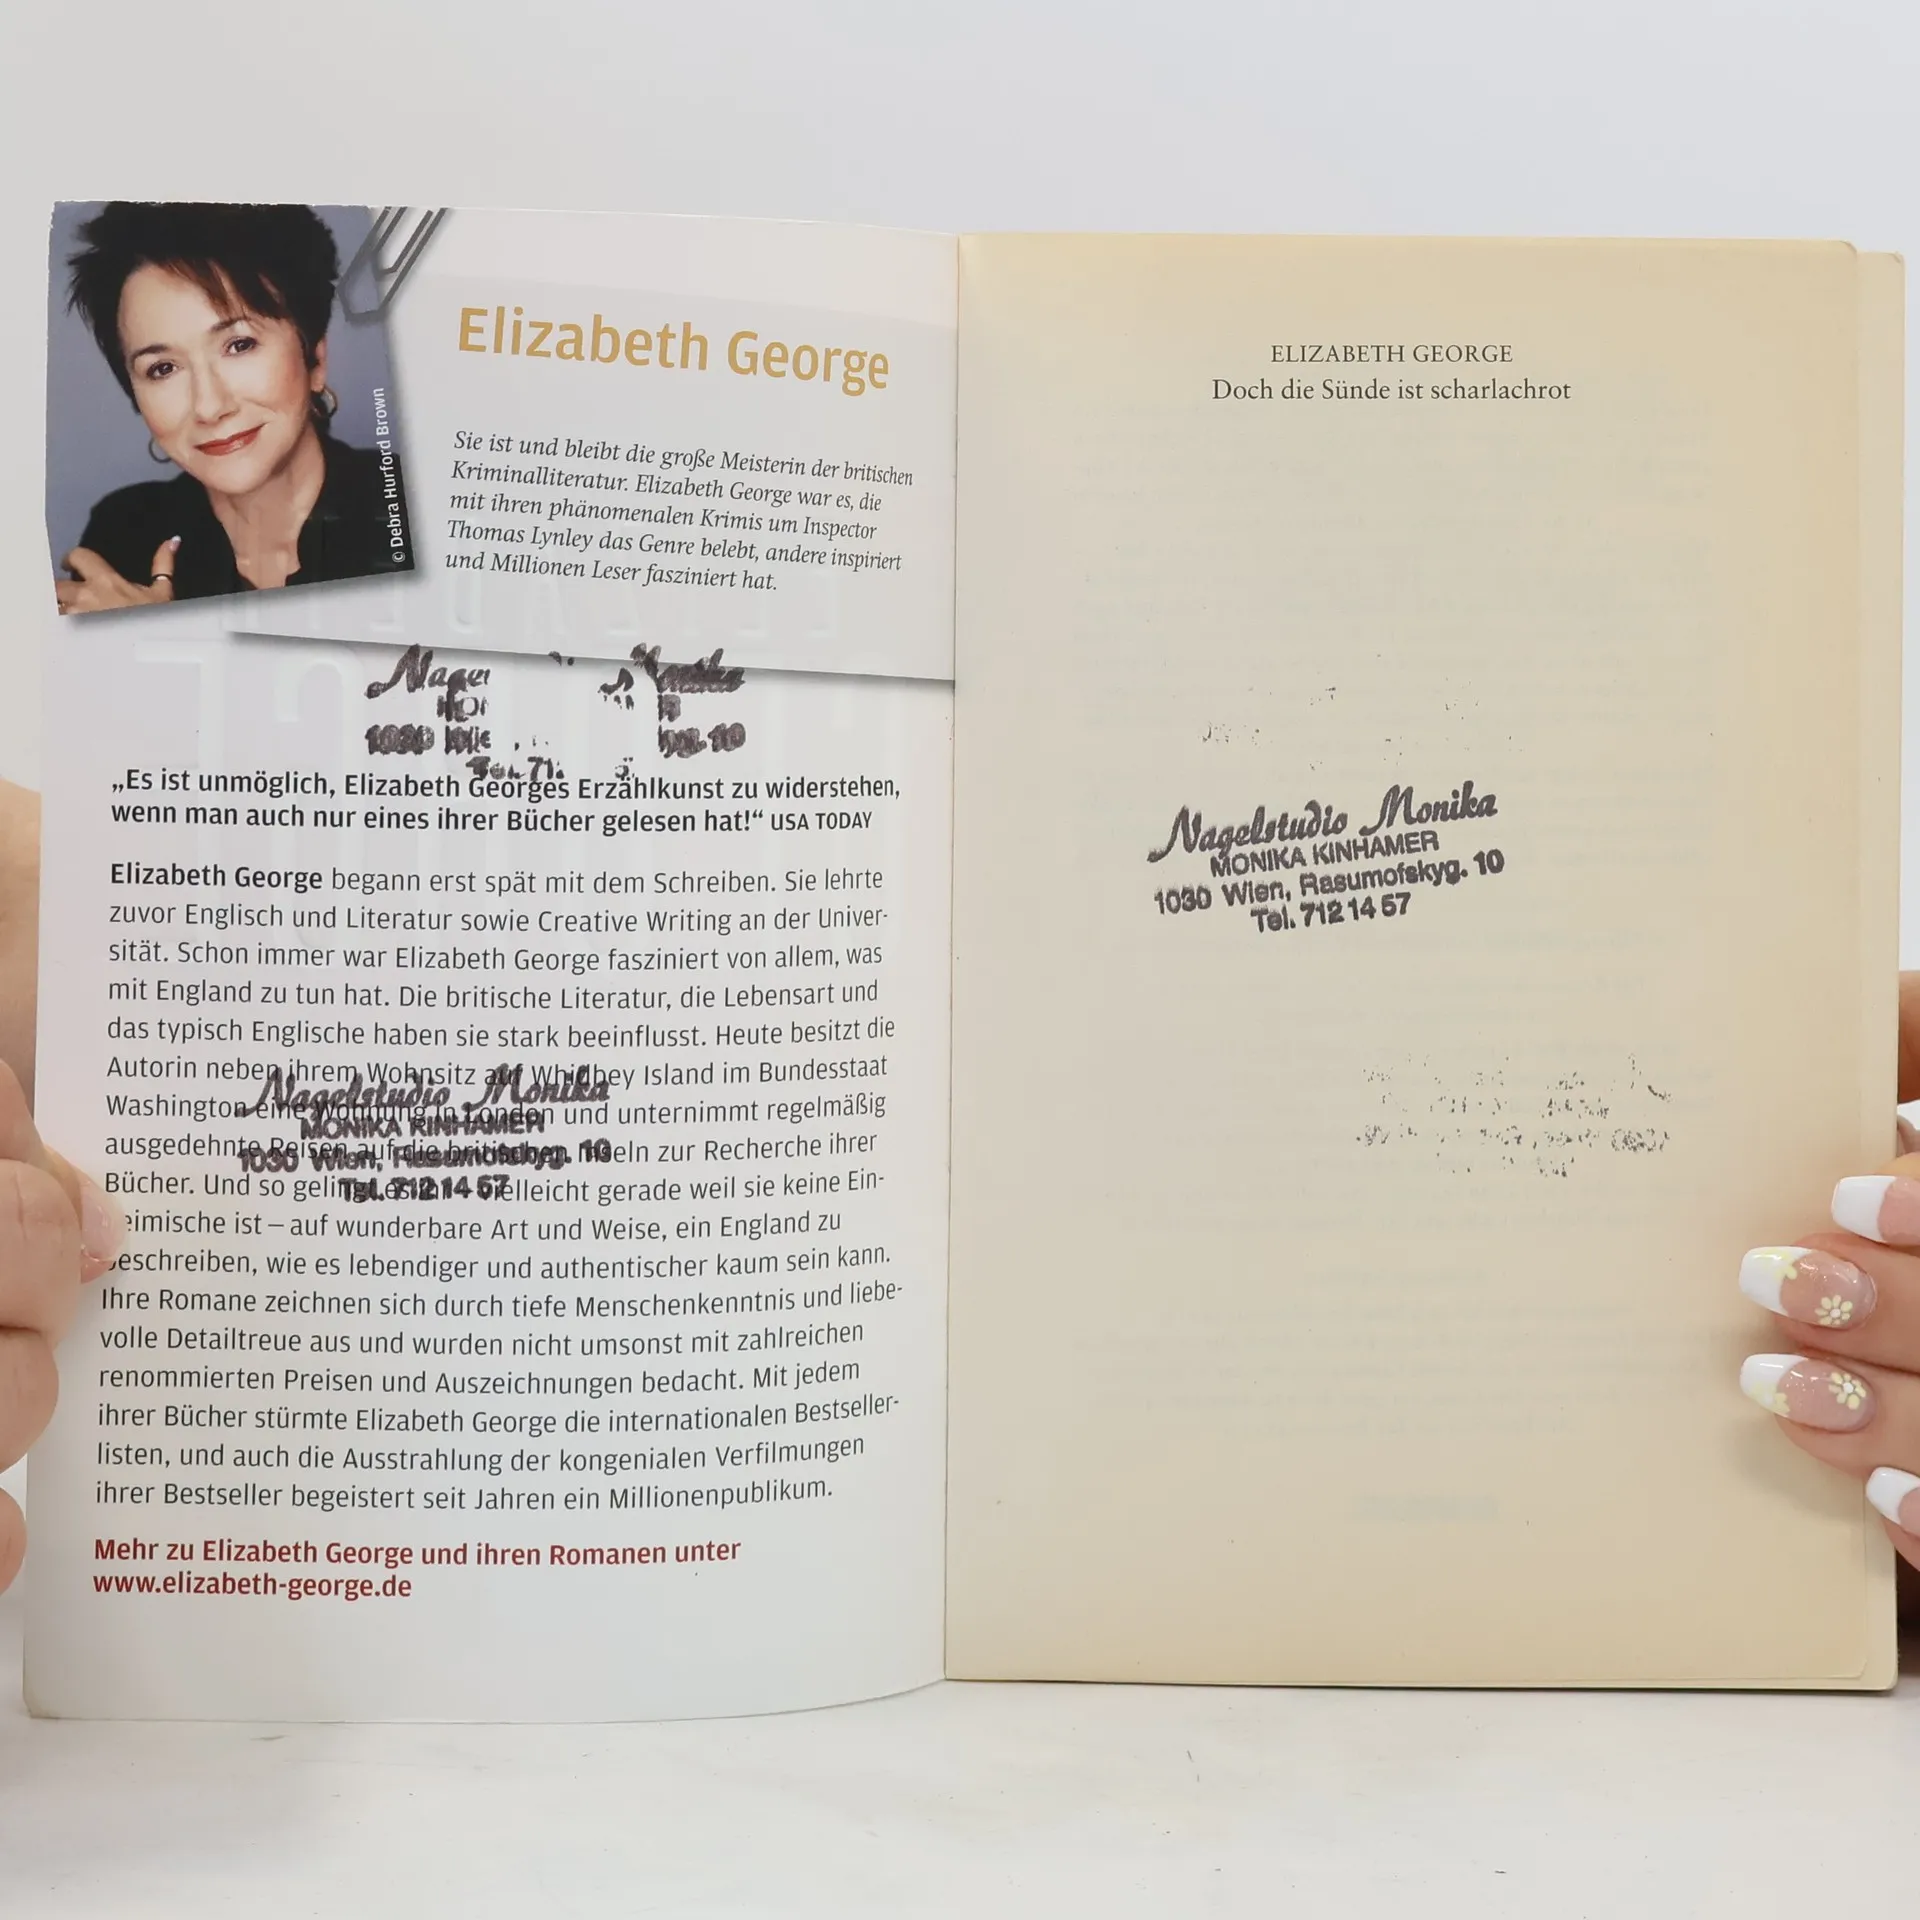 © Debra Hurford Brown
Elizabeth George
Sie ist und bleibt die große Meisterin der britischen
Kriminalliteratur. Elizabeth George war es, die
mit ihren phänomenalen Krimis um Inspector
Thomas Lynley das Genre belebt, andere inspiriert
und Millionen Leser fasziniert hat.
„Es ist unmöglich, Elizabeth Georges Erzählkunst zu widerstehen,
wenn man auch nur eines ihrer Bücher gelesen hat!“ USA TODAY
Elizabeth George begann erst spät mit dem Schreiben. Sie lehrte
zuvor Englisch und Literatur sowie Creative Writing an der Univer-
sität. Schon immer war Elizabeth George fasziniert von allem, was
mit England zu tun hat. Die britische Literatur, die Lebensart und
das typisch Englische haben sie stark beeinflusst. Heute besitzt die
Autorin neben ihrem Wohnsitz auf Whidbey Island im Bundesstaat
Washington eine Wohnung in London und unternimmt regelmäßig
ausgedehnte Reisen auf die britischen Inseln zur Recherche ihrer
Bücher. Und so gelingt es ihr – vielleicht gerade weil sie keine Ein-
eimische ist – auf wunderbare Art und Weise, ein England zu
eschreiben, wie es lebendiger und authentischer kaum sein kann.
Ihre Romane zeichnen sich durch tiefe Menschenkenntnis und liebe-
volle Detailtreue aus und wurden nicht umsonst mit zahlreichen
renommierten Preisen und Auszeichnungen bedacht. Mit jedem
ihrer Bücher stürmte Elizabeth George die internationalen Bestseller-
listen, und auch die Ausstrahlung der kongenialen Verfilmungen
ihrer Bestseller begeistert seit Jahren ein Millionenpublikum.
Nagelstudio Monika
MONIKA KINHAMER
1030 Wien, Rasumofskyg. 10
Tel. 712 14 57
Mehr zu Elizabeth George und ihren Romanen unter
www.elizabeth-george.de
ELIZABETH GEORGE
Doch die Sünde ist scharlachrot
Nagelstudio Monika
MONIKA KINHAMER
1030 Wien, Rasumofskyg. 10
Tel. 712 14 57